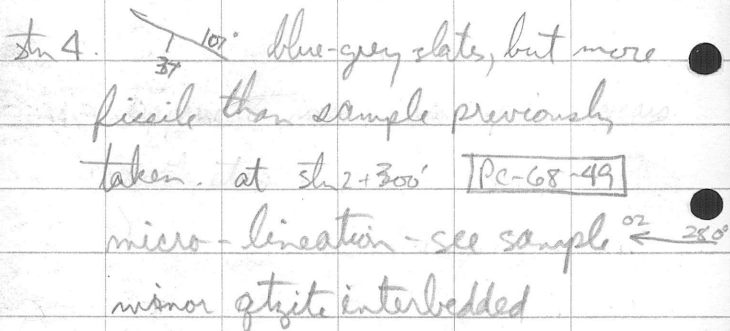 stn 4. 107° 37 blue-grey slates, but more
fissile than sample previously
taken. at stn 2+300' PC-68-49
micro-lineation - see sample 02 280°
minor qtzite interbedded